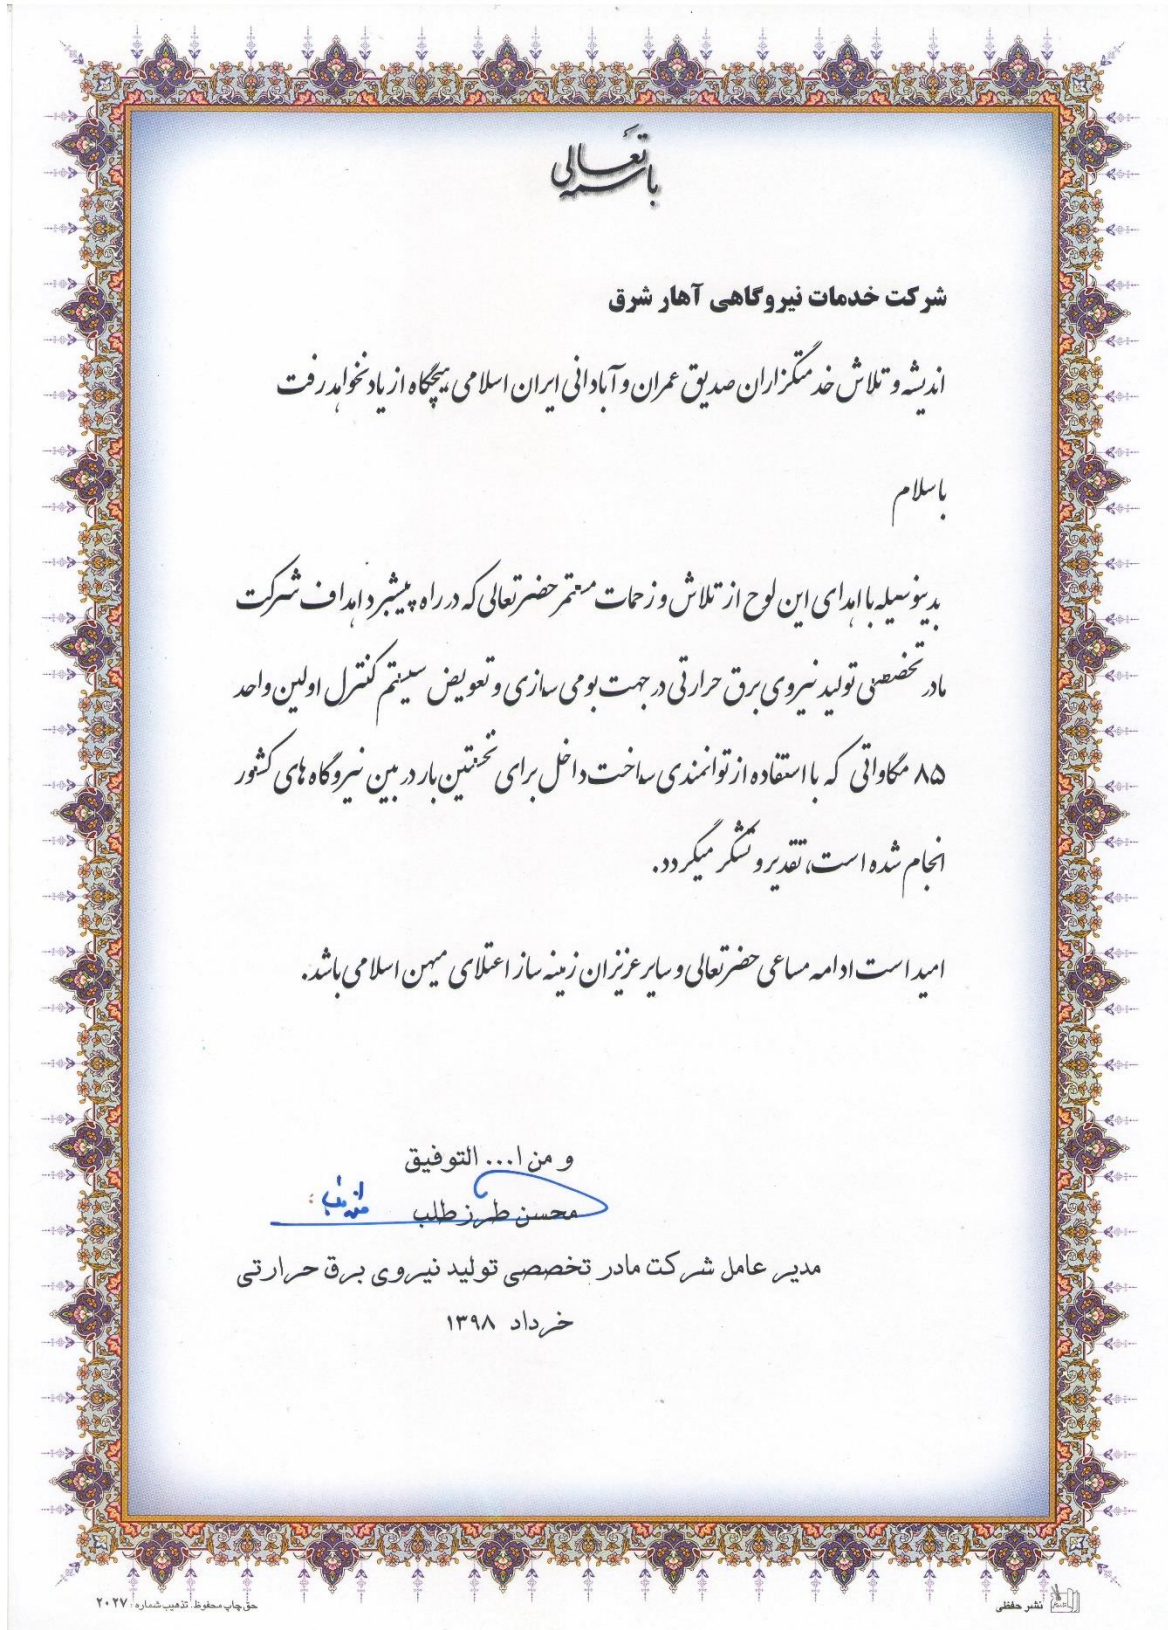 باسمه تعالی
شرکت خدمات نیروگاهی آهار شرق
اندیشه و تلاش خدمتگزاران صدیق عمران و آبادانی ایران اسلامی هیچگاه از یاد نخواهد رفت
باسلام
بدینوسیله با اهدای این لوح از تلاش و زحمات مستمر حضرتعالی که در راه پیشبرد اهداف شرکت
مادر تخصصی تولید نیروی برق حرارتی در جهت بومی سازی و تعویض سیستم کنترل اولین واحد
۸۵ مگاواتی که با استفاده از توانمندی ساخت داخل برای نخستین بار در بین نیروگاه های کشور
انجام شده است، تقدیر و تشکر میگردد.
امید است ادامه مساعی حضرتعالی و سایر عزیزان زمینه ساز اعتلای میهن اسلامی باشد.
و من ا... التوفیق
محسن طرزطلب
مدیر عامل شرکت مادر تخصصی تولید نیروی برق حرارتی
خرداد ۱۳۹۸
نشر حفظی
حق چاپ محفوظ. تذهیب شماره: ۲۰۲۷